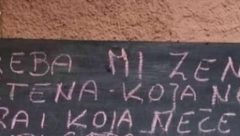 REBA MI ŽEN
TENA KOJA N
RA I KOJA NEĆE